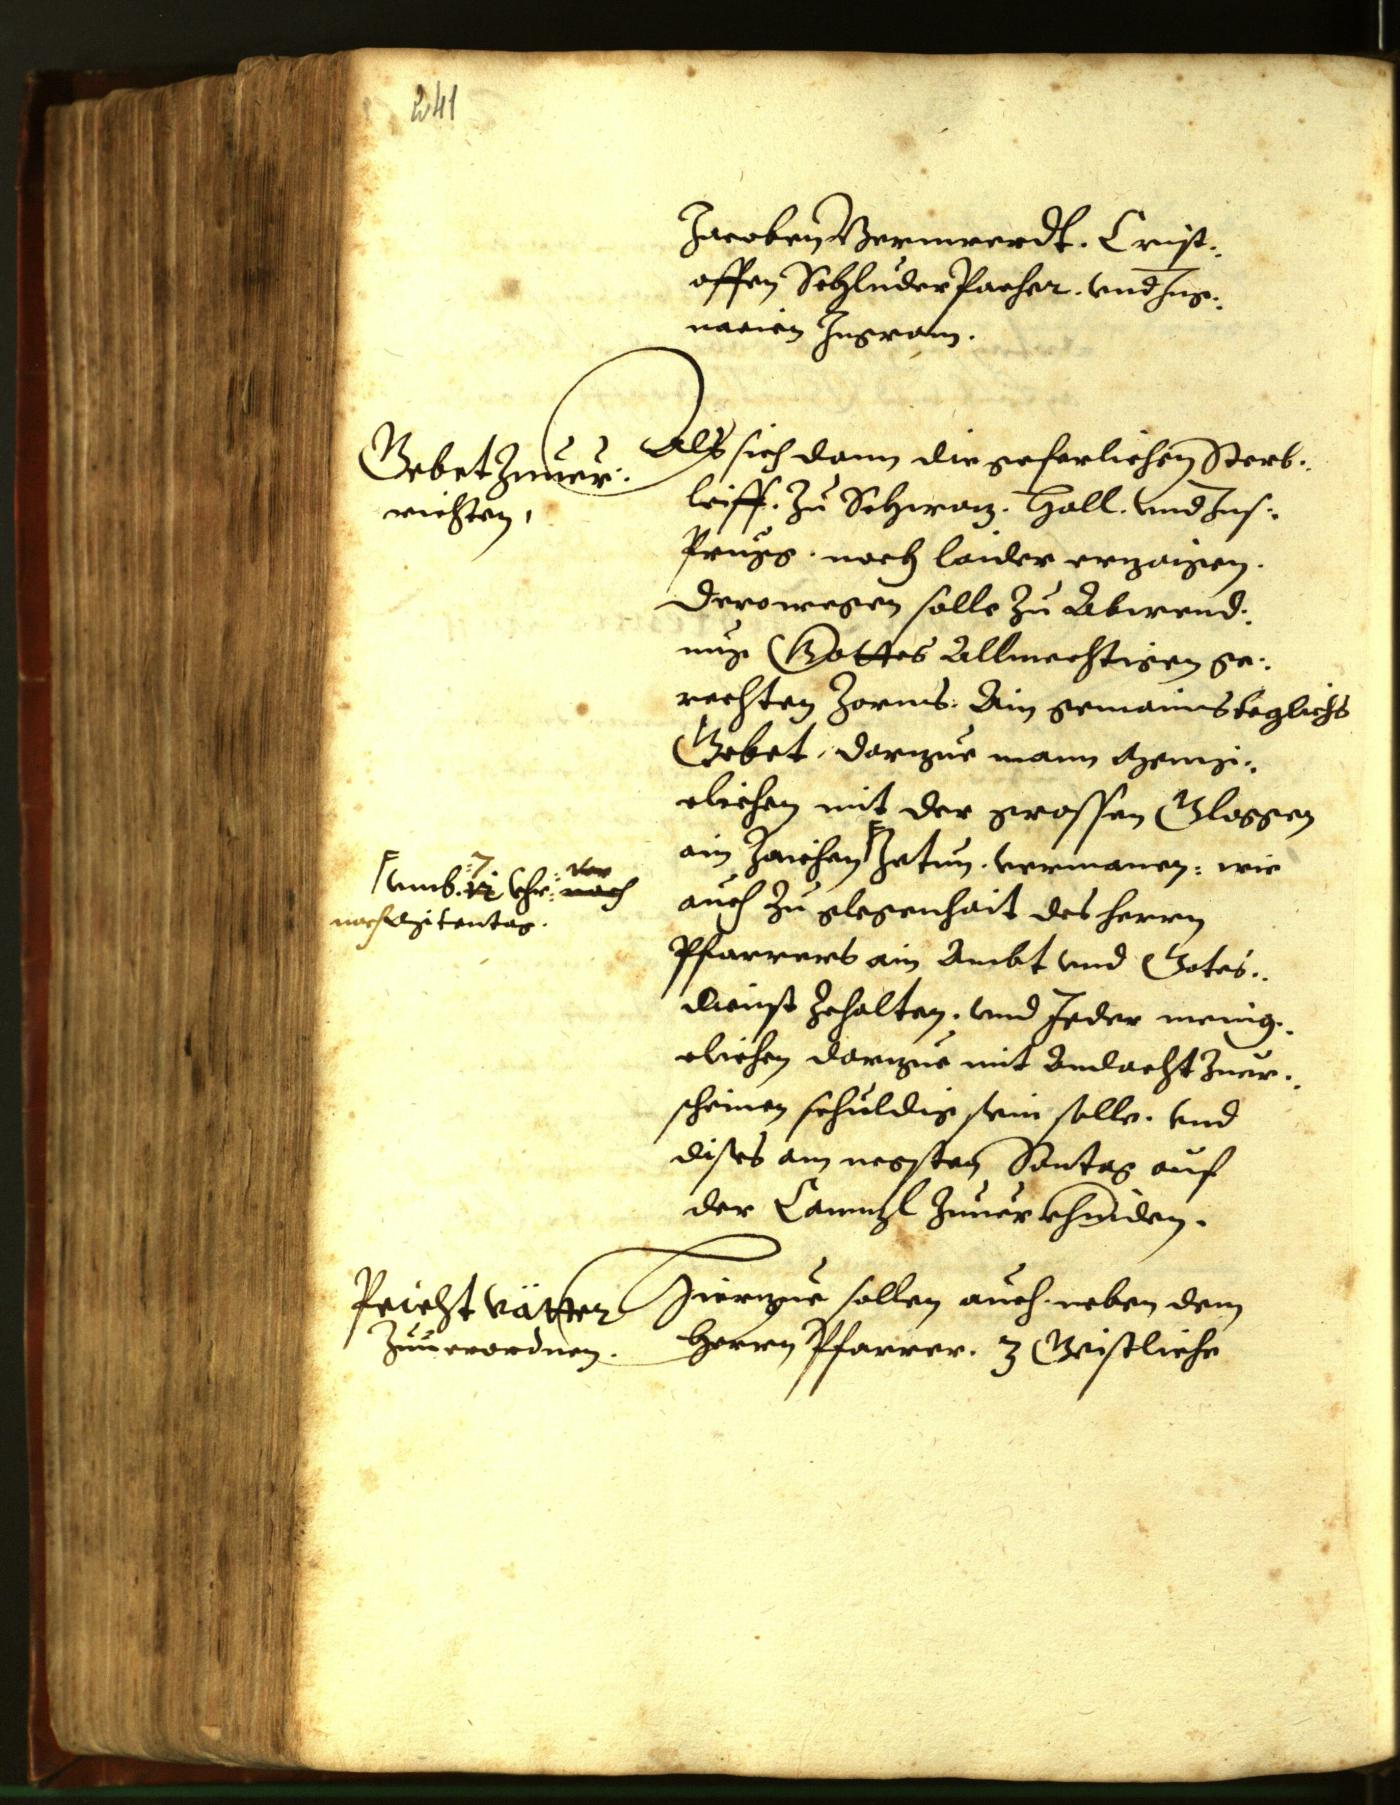 241
Jacoben Vermwerdt. Crist:
offen Schluderpacher. vnd Ing:
naeien Ingram.
Gebet zuuer:
richten,
Als sich dann die geferlichen Sterb:
leiff. zu Schwaz. Hall. vnd Ins:
prugg. noch laider erzaigen.
Derowegen solle zu Abwend:
ung Gottes Allmechtigen ge:
rechten Zorns. Ain gemains teglichs
Gebet, darzue mann
elichen mit der grossen Gloggen
ain Zaichen ⌈ Zetun. vermanen: wie
auch zu glegenhait des herrn
Pfarrers ain Ambt vnd Gotes:
dienst Zehalten. vnd Jeder menig:
elichen darzue mit Andacht Zuer:
scheinen schuldig sein solle. vnd
dises am negsten Sontag auf
der Canntzl Zuuerkhinden.
⌈ vmb. :7: vi Vhr: vor nach
mitentag.
Peicht vätter
Zuuerordnen.
Hierzue sollen auch neben dem
herrn Pfarrer. 3 Geistliche